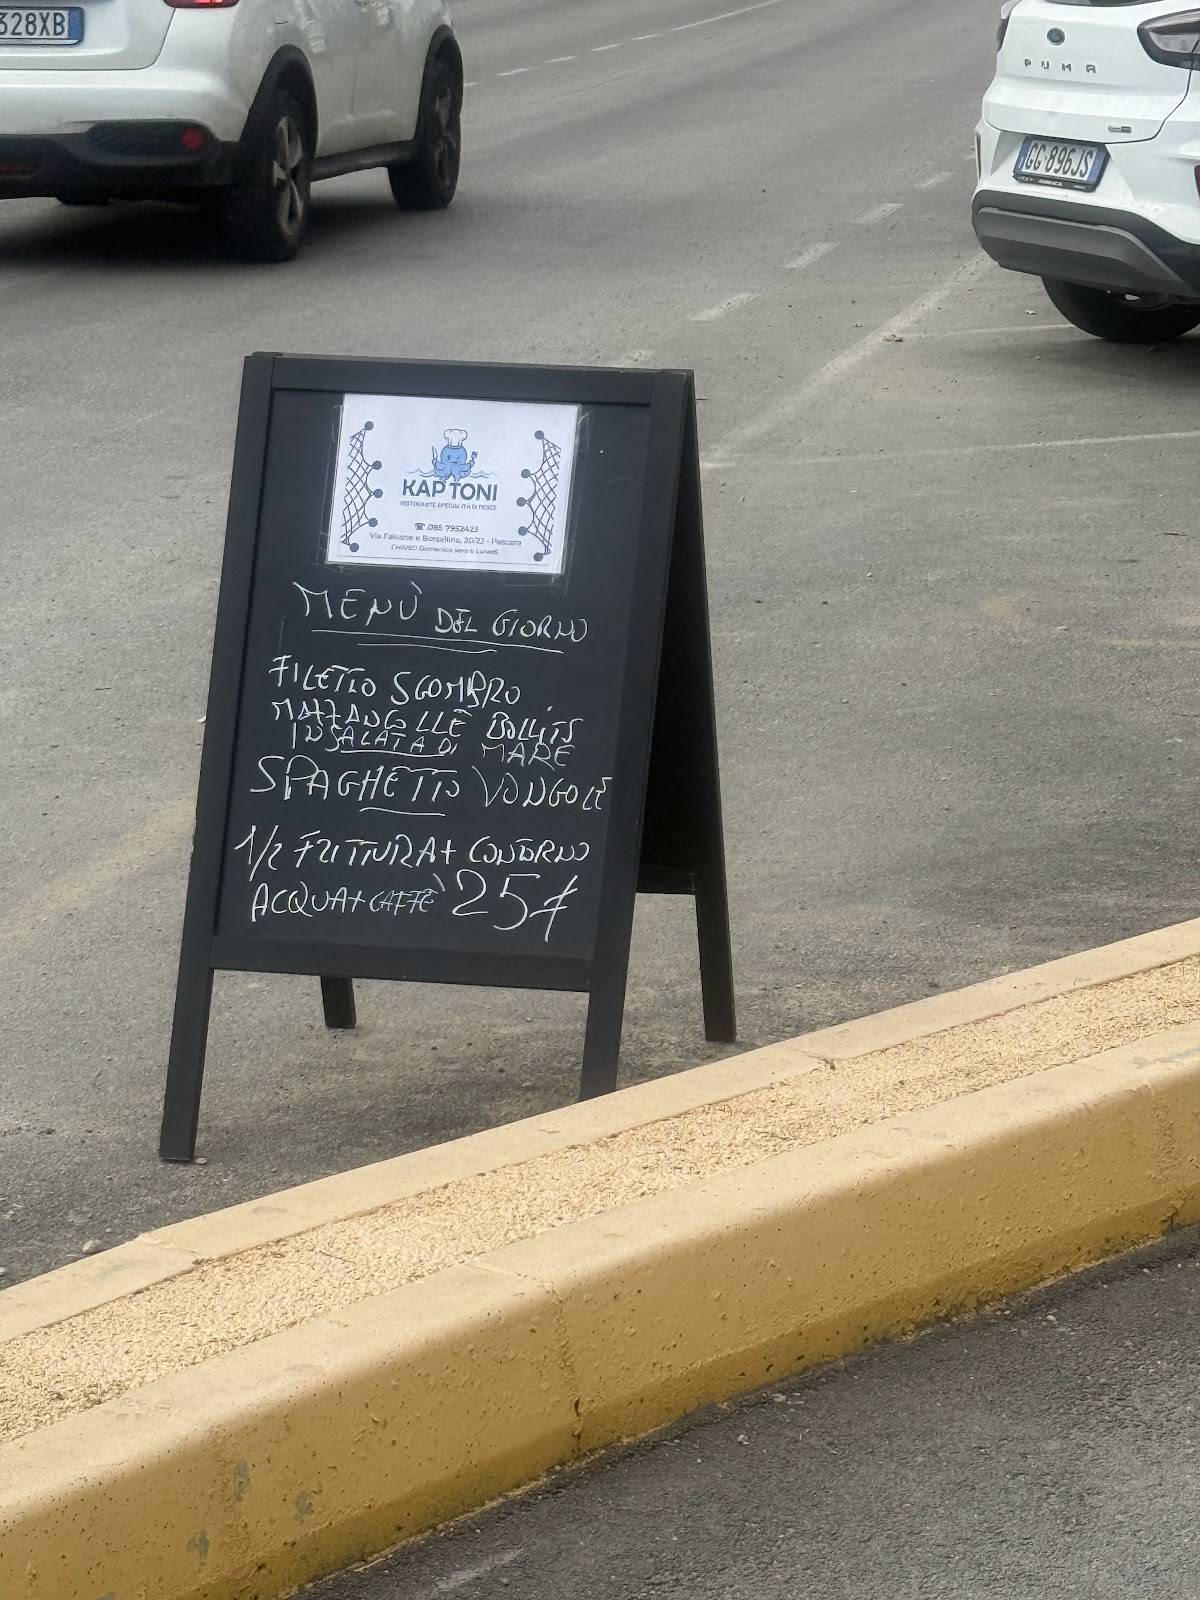 328XB
PUMA
GG 896JS
KAPTONI
RISTORANTE SPECIALITÀ DI PESCE
☎ 085 7952423
Via Falcone e Borsellino, 20/22 - Pescara
CHIUSO Domenica sera e Lunedì
MENÙ DEL GIORNO
FILETTO SGOMBRO
MAZZANGOLLE BOLLITE
INSALATA DI MARE
SPAGHETTO VONGOLE
1/2 FRITTURA + CONTORNO
ACQUA + CAFFÈ 25€